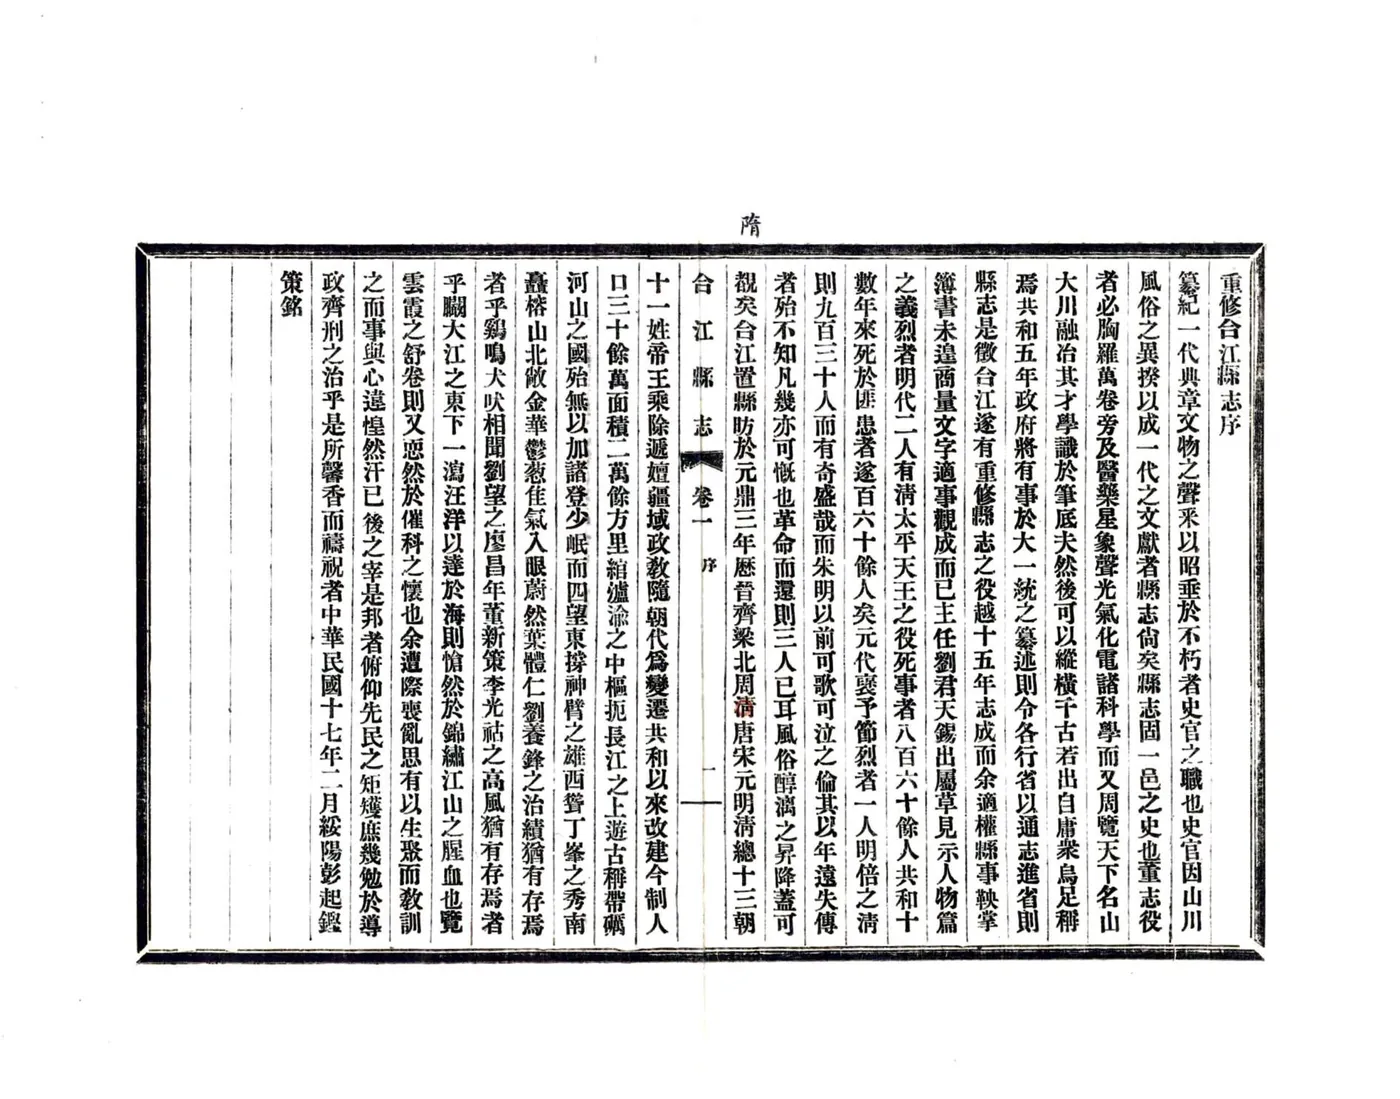 隋
重修台江縣志序
纂紀一代典章文物之聲釆以昭垂於不朽者史官之職也史官因山川
風俗之異揆以成一代之文獻者縣志尙矣縣志固一邑之史也董志役
者必胸羅萬卷旁及醫藥星象聲光氣化電諸科學而又周覽天下名山
大川融冶其才學識於筆底夫然後可以縱橫千古若出自庸衆烏足稱
焉共和五年政府將有事於大一統之纂述則令各行省以通志進省則
縣志是徵台江遂有重修縣志之役越十五年志成而余適權縣事鞅掌
簿書未遑商量文字適事觀成而已主任劉君天錫出屬草見示人物篇
之義烈者明代二人有淸太平天王之役死事者八百六十餘人共和十
數年來死於匪患者遂百六十餘人矣元代裒予節烈者一人明倍之淸
則九百三十人而有奇盛哉而朱明以前可歌可泣之倫其以年遠失傳
者殆不知凡幾亦可慨也革命而還則三人已耳風俗醇漓之昇降蓋可
覩矣台江置縣昉於元鼎三年歷晉齊梁北周淸唐宋元明淸總十三朝
台江縣志 卷一 序 一
十一姓帝王乘除遞嬗疆域政敎隨朝代爲變遷共和以來改建今制人
口三十餘萬面積二萬餘方里綰瀘渝之中樞扼長江之上遊古稱帶礪
河山之國殆無以加諸登少岷而四望東撐神臂之雄西聳丁峯之秀南
矗榕山北敞金華鬱葱佳氣入眼蔚然葉體仁劉養鋒之治績猶有存焉
者乎鷄鳴犬吠相聞劉望之廖昌年董新策李光祜之高風猶有存焉者
乎瞰大江之東下一瀉汪洋以達於海則愴然於錦繡江山之腥血也覽
雲霞之舒卷則又恧然於催科之懷也余遭際喪亂思有以生聚而敎訓
之而事與心違惶然汗已後之宰是邦者俯仰先民之矩矱庶幾勉於導
政齊刑之治乎是所馨香而禱祝者中華民國十七年二月綏陽彭起鏗
策銘